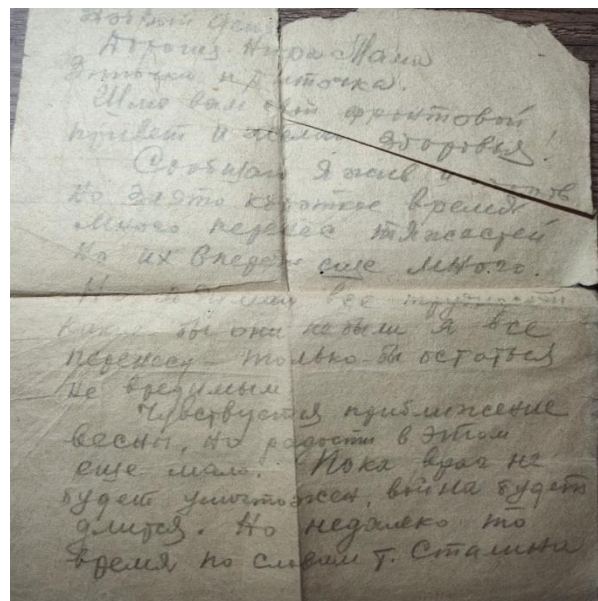 Добрый день
Дорогия Нюра Мама
и Риточка.
Шлю вам свой фронтовой
привет и желаю здоровья!
Сообщаю я жив и здоров
Но заэто короткое время
много перенес тяжестей
Но их впереди еще много.
Но я думаю все трудности
какие бы они небыли я все
перенесу – только-бы остаться
не вредимым
Чувствуется приближение
весны, но радости в этом
еще мало. Пока враг не
будет уничтожен, война будет
длится. Но недалеко то
время по словам т. Сталина